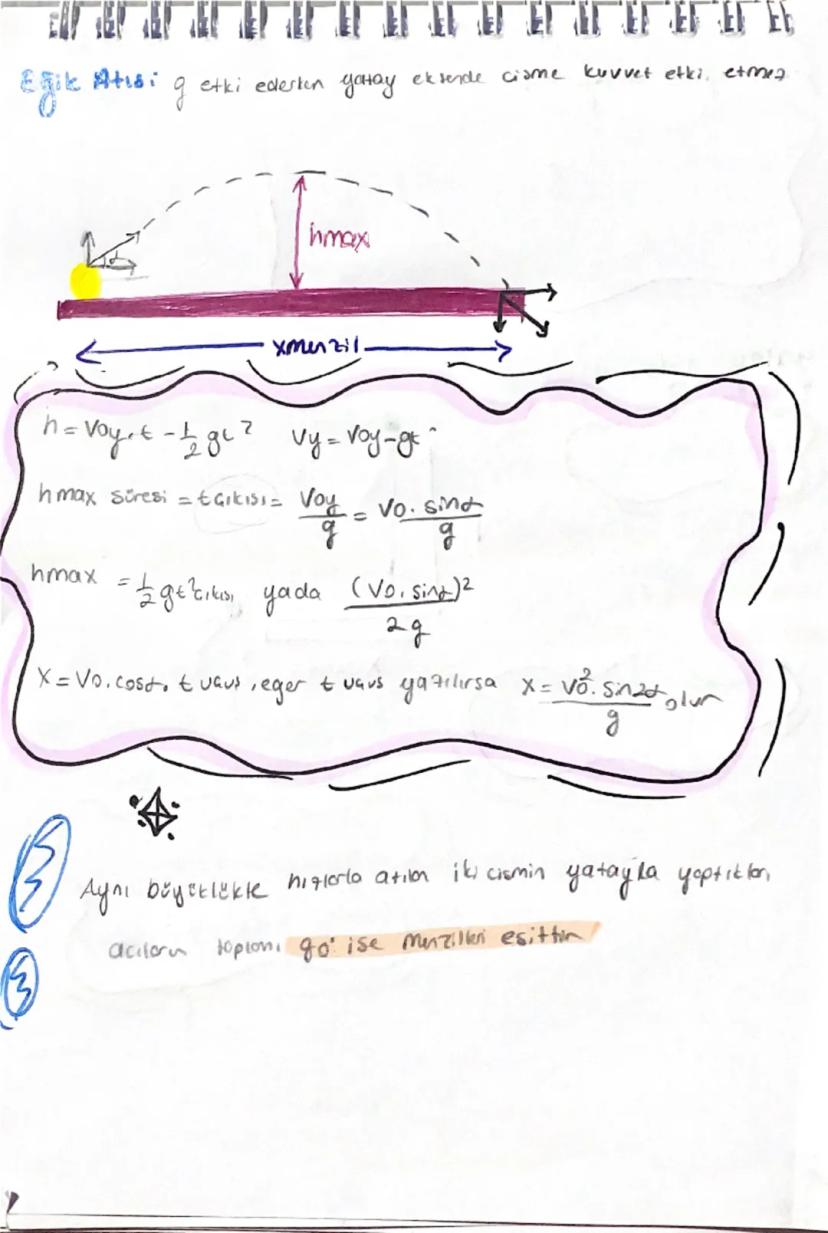 Eğik Atış: g etki ederken yatay eksende cisme kuvvet etki etmez
α
hmax
xmenzil
h = Voy.t - 1/2 gt² Vy = Voy - gt
hmax süresi = tçıkış = Voy/g = Vo.sinα/g
hmax = 1/2 gt²çıkış yada (Vo.sinα)²/2g
X = Vo.cosα.t uçuş, eğer t uçuş yazılırsa X = Vo².sin2α/g olur
Aynı büyüklükte hızlarla atılan iki cismin yatayla yaptıkları
açıların toplamı 90° ise menzilleri eşittir